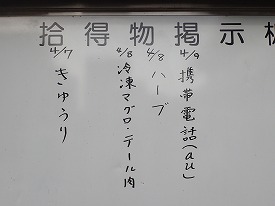 拾得物掲示板
4/9 携帯電話(au)
4/8 ハーブ
4/8 冷凍マグロ・テール肉
4/7 きゅうり